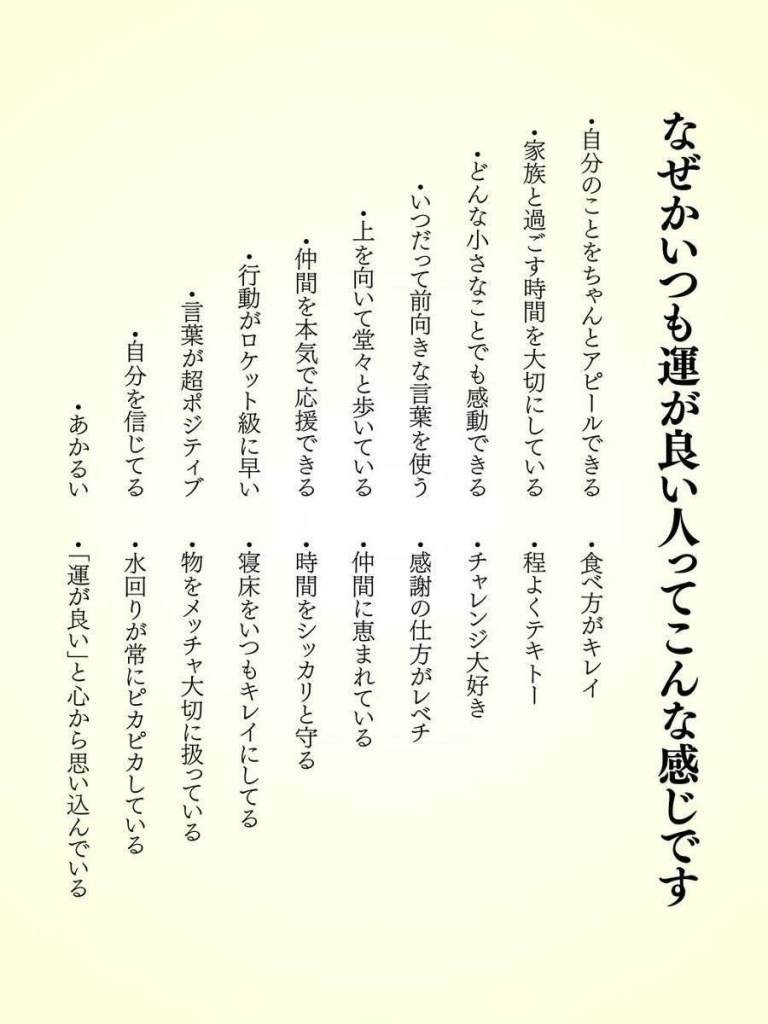 なぜかいつも運が良い人ってこんな感じです
・自分のことをちゃんとアピールできる
・家族と過ごす時間を大切にしている
・どんな小さなことでも感動できる
・いつだって前向きな言葉を使う
・上を向いて堂々と歩いている
・仲間を本気で応援できる
・行動がロケット級に早い
・言葉が超ポジティブ
・自分を信じてる
・あかるい
・食べ方がキレイ
・程よくテキトー
・チャレンジ大好き
・感謝の仕方がレベチ
・仲間に恵まれている
・時間をシッカリと守る
・寝床をいつもキレイにしてる
・物をメッチャ大切に扱っている
・水回りが常にピカピカしている
・「運が良い」と心から思い込んでいる